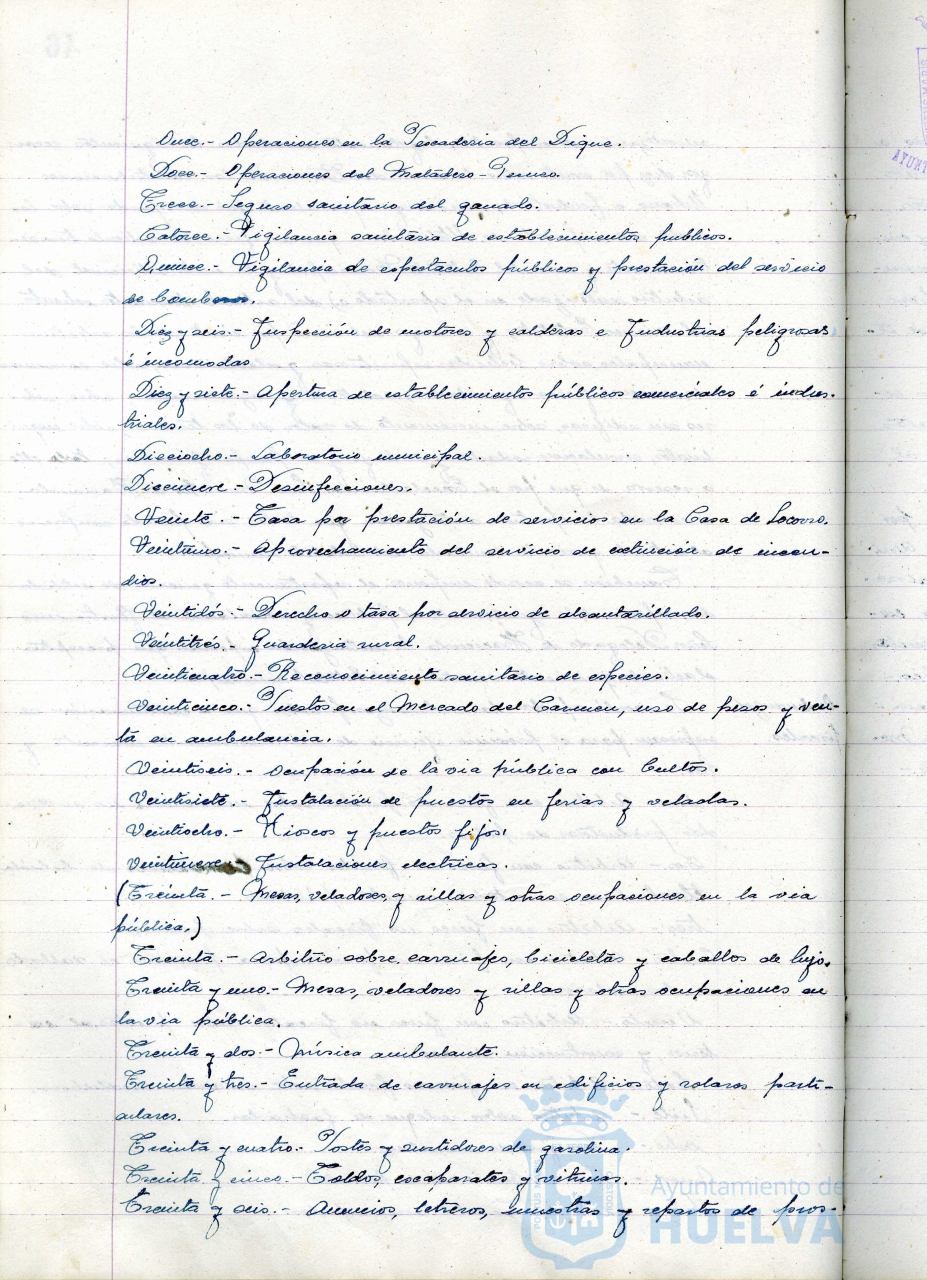 Once.- Operaciones en la Pescaderia del Dique.
Doce.- Operaciones del Matadero-
Trece.- Seguro sanitario del ganado.
Catorce.- Vigilancia sanitaria de establecimientos publicos.
Quince.- Vigilancia de espectaculos públicos y prestación del servicio
de bomberos.
Diez y seis.- Inspección de motores y calderas e Industrias peligrosas
é incomodas
Diez y siete.- Apertura de establecimientos públicos comerciales é indus-
triales.
Dieciocho.- Laboratorio municipal.
Diecinueve.- Desinfecciones.
Veinte.- Tasa por prestación de servicios en la Casa de Socorro.
Veintiuno.- Aprovechamiento del servicio de extinción de incen-
dios.
Veintidós.- Derecho o tasa por servicio de alcantarillado.
Veintitrés.- Guarderia rural.
Veinticuatro.- Reconocimiento sanitario de especies.
Veinticinco.- Puestos en el Mercado del Carmen, uso de pesos y ven-
ta en ambulancia.
Veintiseis.- Ocupación de la via pública con bultos.
Veintisiete.- Instalación de puestos en ferias y veladas.
Veintiocho.- Kioscos y puestos fijos.
Veintinueve Instalaciones electricas.
(Treinta.- Mesas, veladores, y sillas y otras ocupaciones en la via
pública.)
Treinta.- Arbitrio sobre carruajes, bicicletas y caballos de lujo.
Treinta y uno.- Mesas, veladores y sillas y otras ocupaciones en
la via pública.
Treinta y dos.- Música ambulante.
Treinta y tres.- Entrada de carruajes en edificios y solares parti-
culares.
Treinta y cuatro.- Postes y surtidores de gasolina.
Treinta y cinco.- Toldos, escaparates y vitrinas.
Treinta y seis.- Anuncios, letreros, muestras y repartos de pros-
Ayuntamiento de
HUELVA